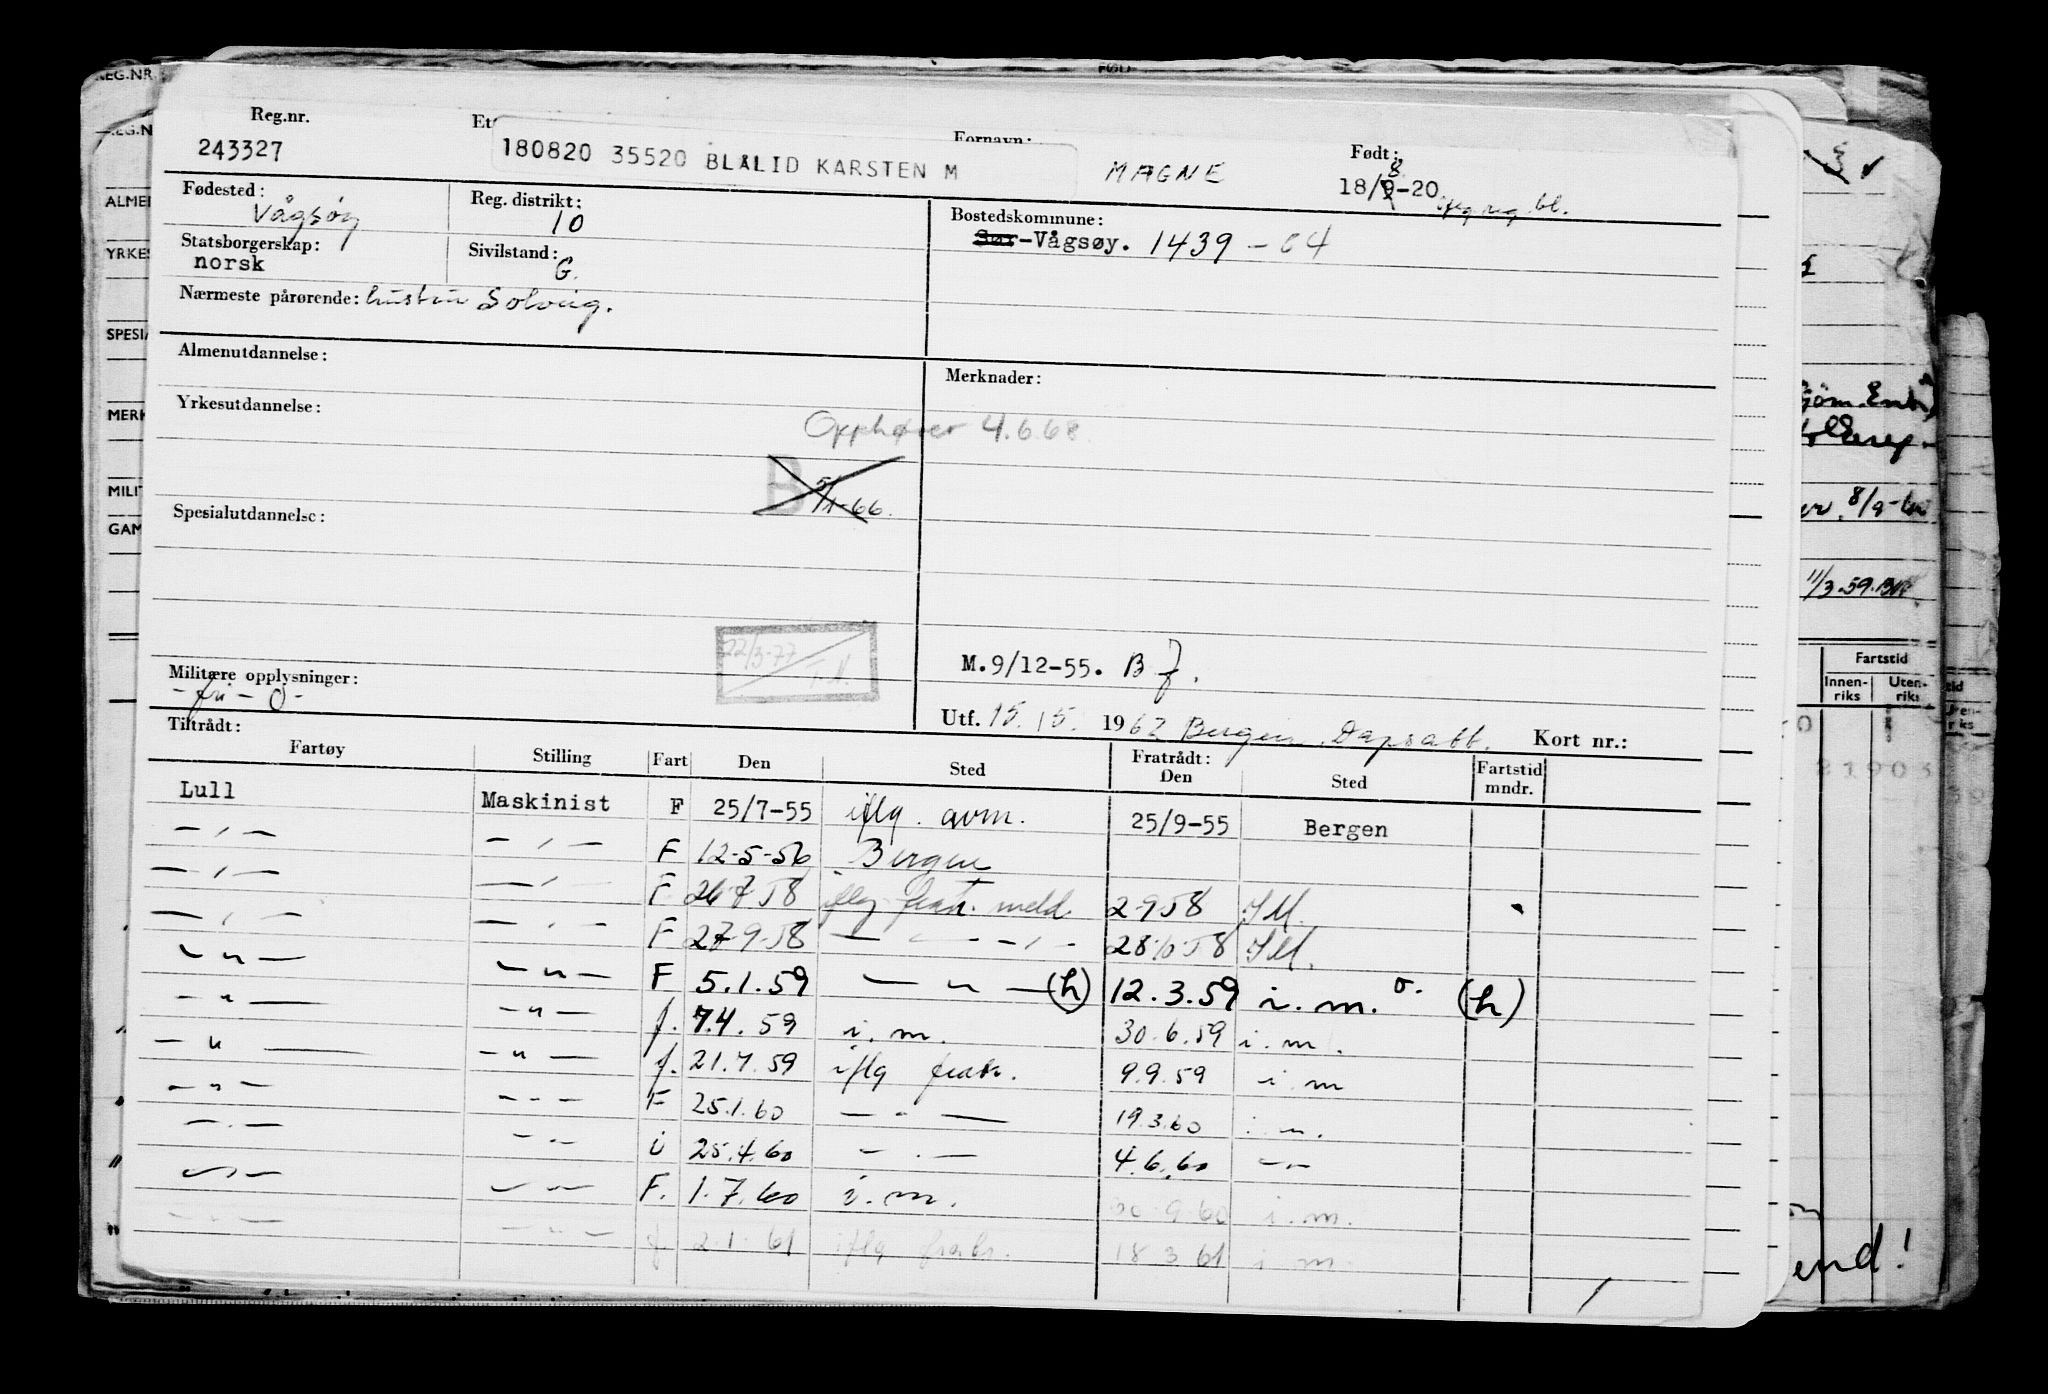 Reg.nr. Fornavn: Født:
243327 180820 35520 BLÅLID KARSTEN M MAGNE 18/8-20
Fødested: Vågsøy Reg. distrikt: 10 Bostedskommune:
Sør-Vågsøy. 1439 - 04
Statsborgerskap: norsk Sivilstand: G.
Nærmeste pårørende: hustru Solveig.
Almenutdannelse: Merknader:
Yrkesutdannelse:
Opphører 4.6.68
B 5/1-66
Spesialutdannelse:
22/3-77
M.9/12-55. B
Militære opplysninger:
- fri -
Utf. 15. 5. 1962 Bergen Kort nr.:
Tiltrådt: Fratrådt:
Fartøy Stilling Fart Den Sted Den Sted Fartstid mndr.
Lull Maskinist F 25/7-55 iflg. avm. 25/9-55 Bergen
— " — — " — F 12-5-56 Bergen
— " — — " — F 26-7-58 iflg. fratr. meld. 2-9-58 I.M.
— " — — " — F 27-9-58 — " — 28-10-58 I.M.
— " — — " — F 5.1.59 — " — (h) 12.3.59 i.m. (h)
— " — — " — f. 7.4.59 i.m. 30.6.59 i.m.
— " — — " — f. 21.7.59 iflg fratr. 9.9.59 i.m
— " — — " — F 25.1.60 — " — 19.3.60 i.m.
— " — — " — i 25.4.60 — " — 4.6.60 — " —
— " — — " — F. 1.7.60 i.m. 30.9.60 i.m.
— " — — " — f 2.1.61 iflg fratr. 18.3.61 i.m.
REG.NR.
ALMEN
YRKES
SPESIA
MERK
MILIT
8/9-
11/3.59.
Fartstid
Innen-riks Uten-riks
21903
end!